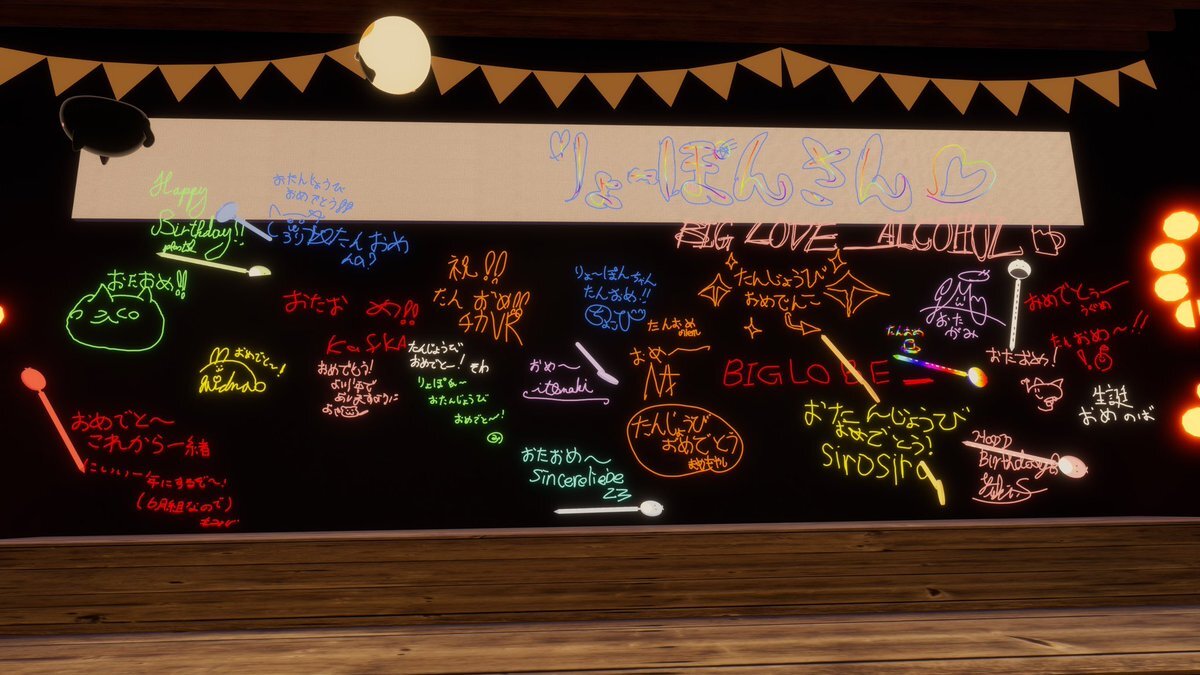 りょ〜ぽんさん
Happy
Birthday!!
おたんじょうび
おめでとう!!
たんおめ
BIG LOVE ALCOHOL
おたおめ!!
おたおめ!!
KaSKA
祝!!
たんおめ!!
チカVR
りょ〜ぽんちゃん
たんおめ!!
たんじょうび
おめでんこ
おめでとうー
たんおめ〜!!
おめでと〜!
おめでとう!
たんじょうび
おめでとー!
りょぽん〜
おたんじょうび
おめでとー!
おめ〜
itomaki
たんおめ
おめ〜
BIGLOBE
たんおめ
おたおめ!
生誕
おめのば
おめでと〜
これから一緒
にいい一年にするで〜!
(6月組なので)
おたおめ〜
Sincereliebe
23
たんじょうび
おめでとう
おたんじょうび
おめでとう!
sirosiro
Happy
Birthday